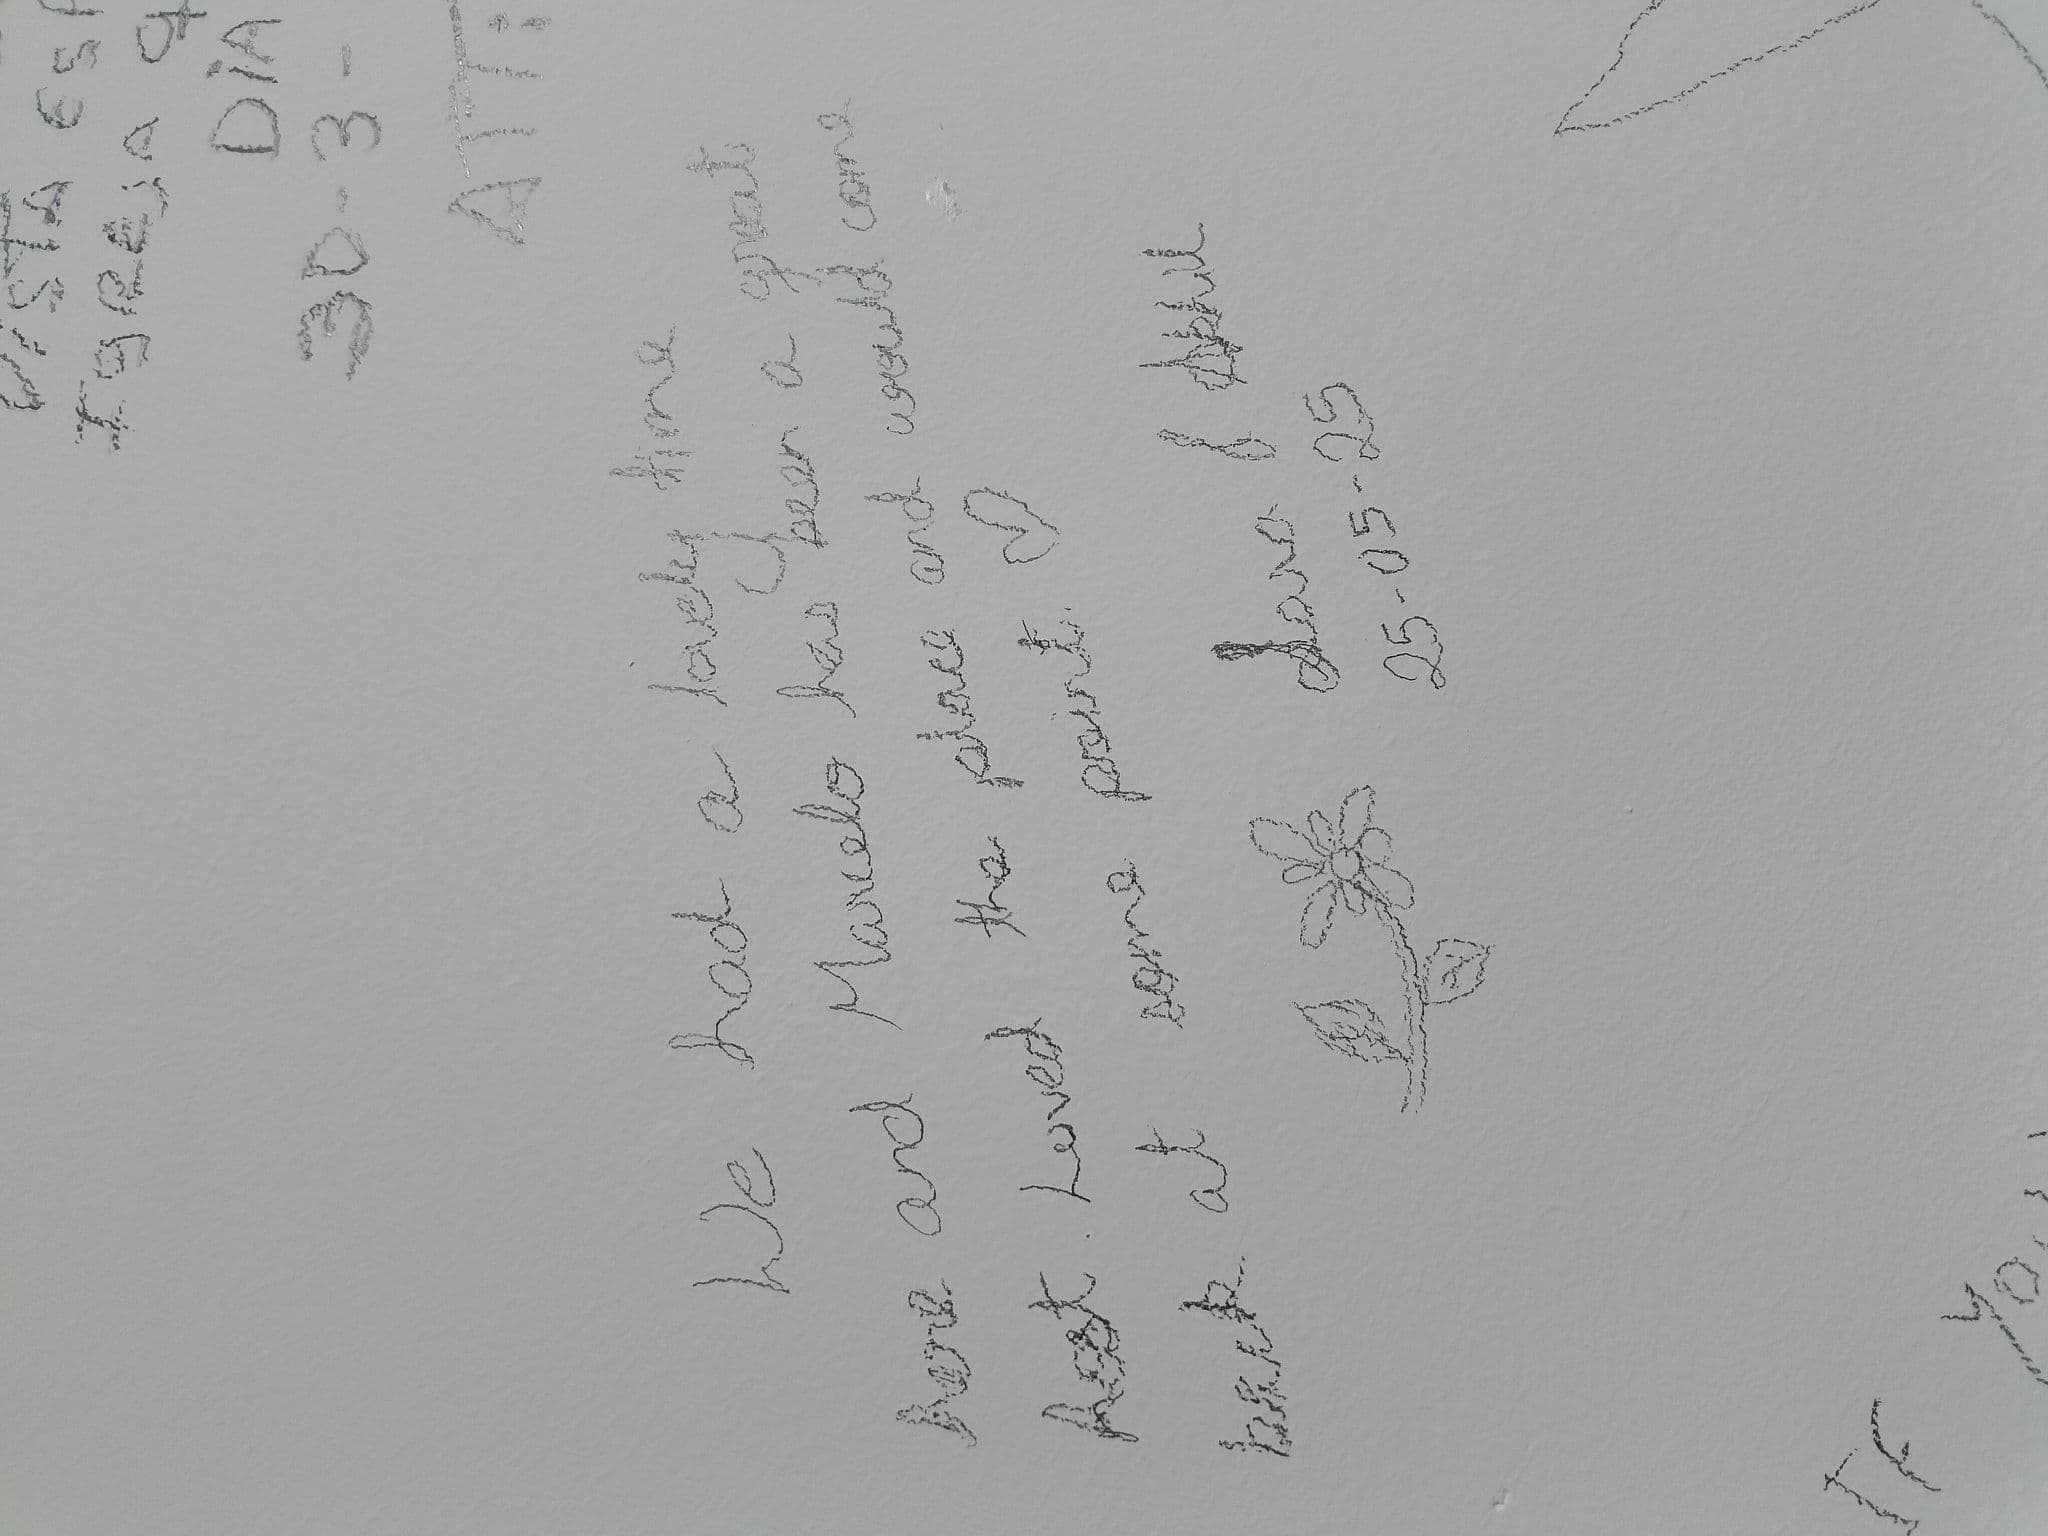 ISTA ESt
IGREJA q
DiA
30-3-
ATT:
We had a lovely time
here and Marcelo has been a great
host. Loved the place and would come
back at some point.
25-05-25
IF YOU